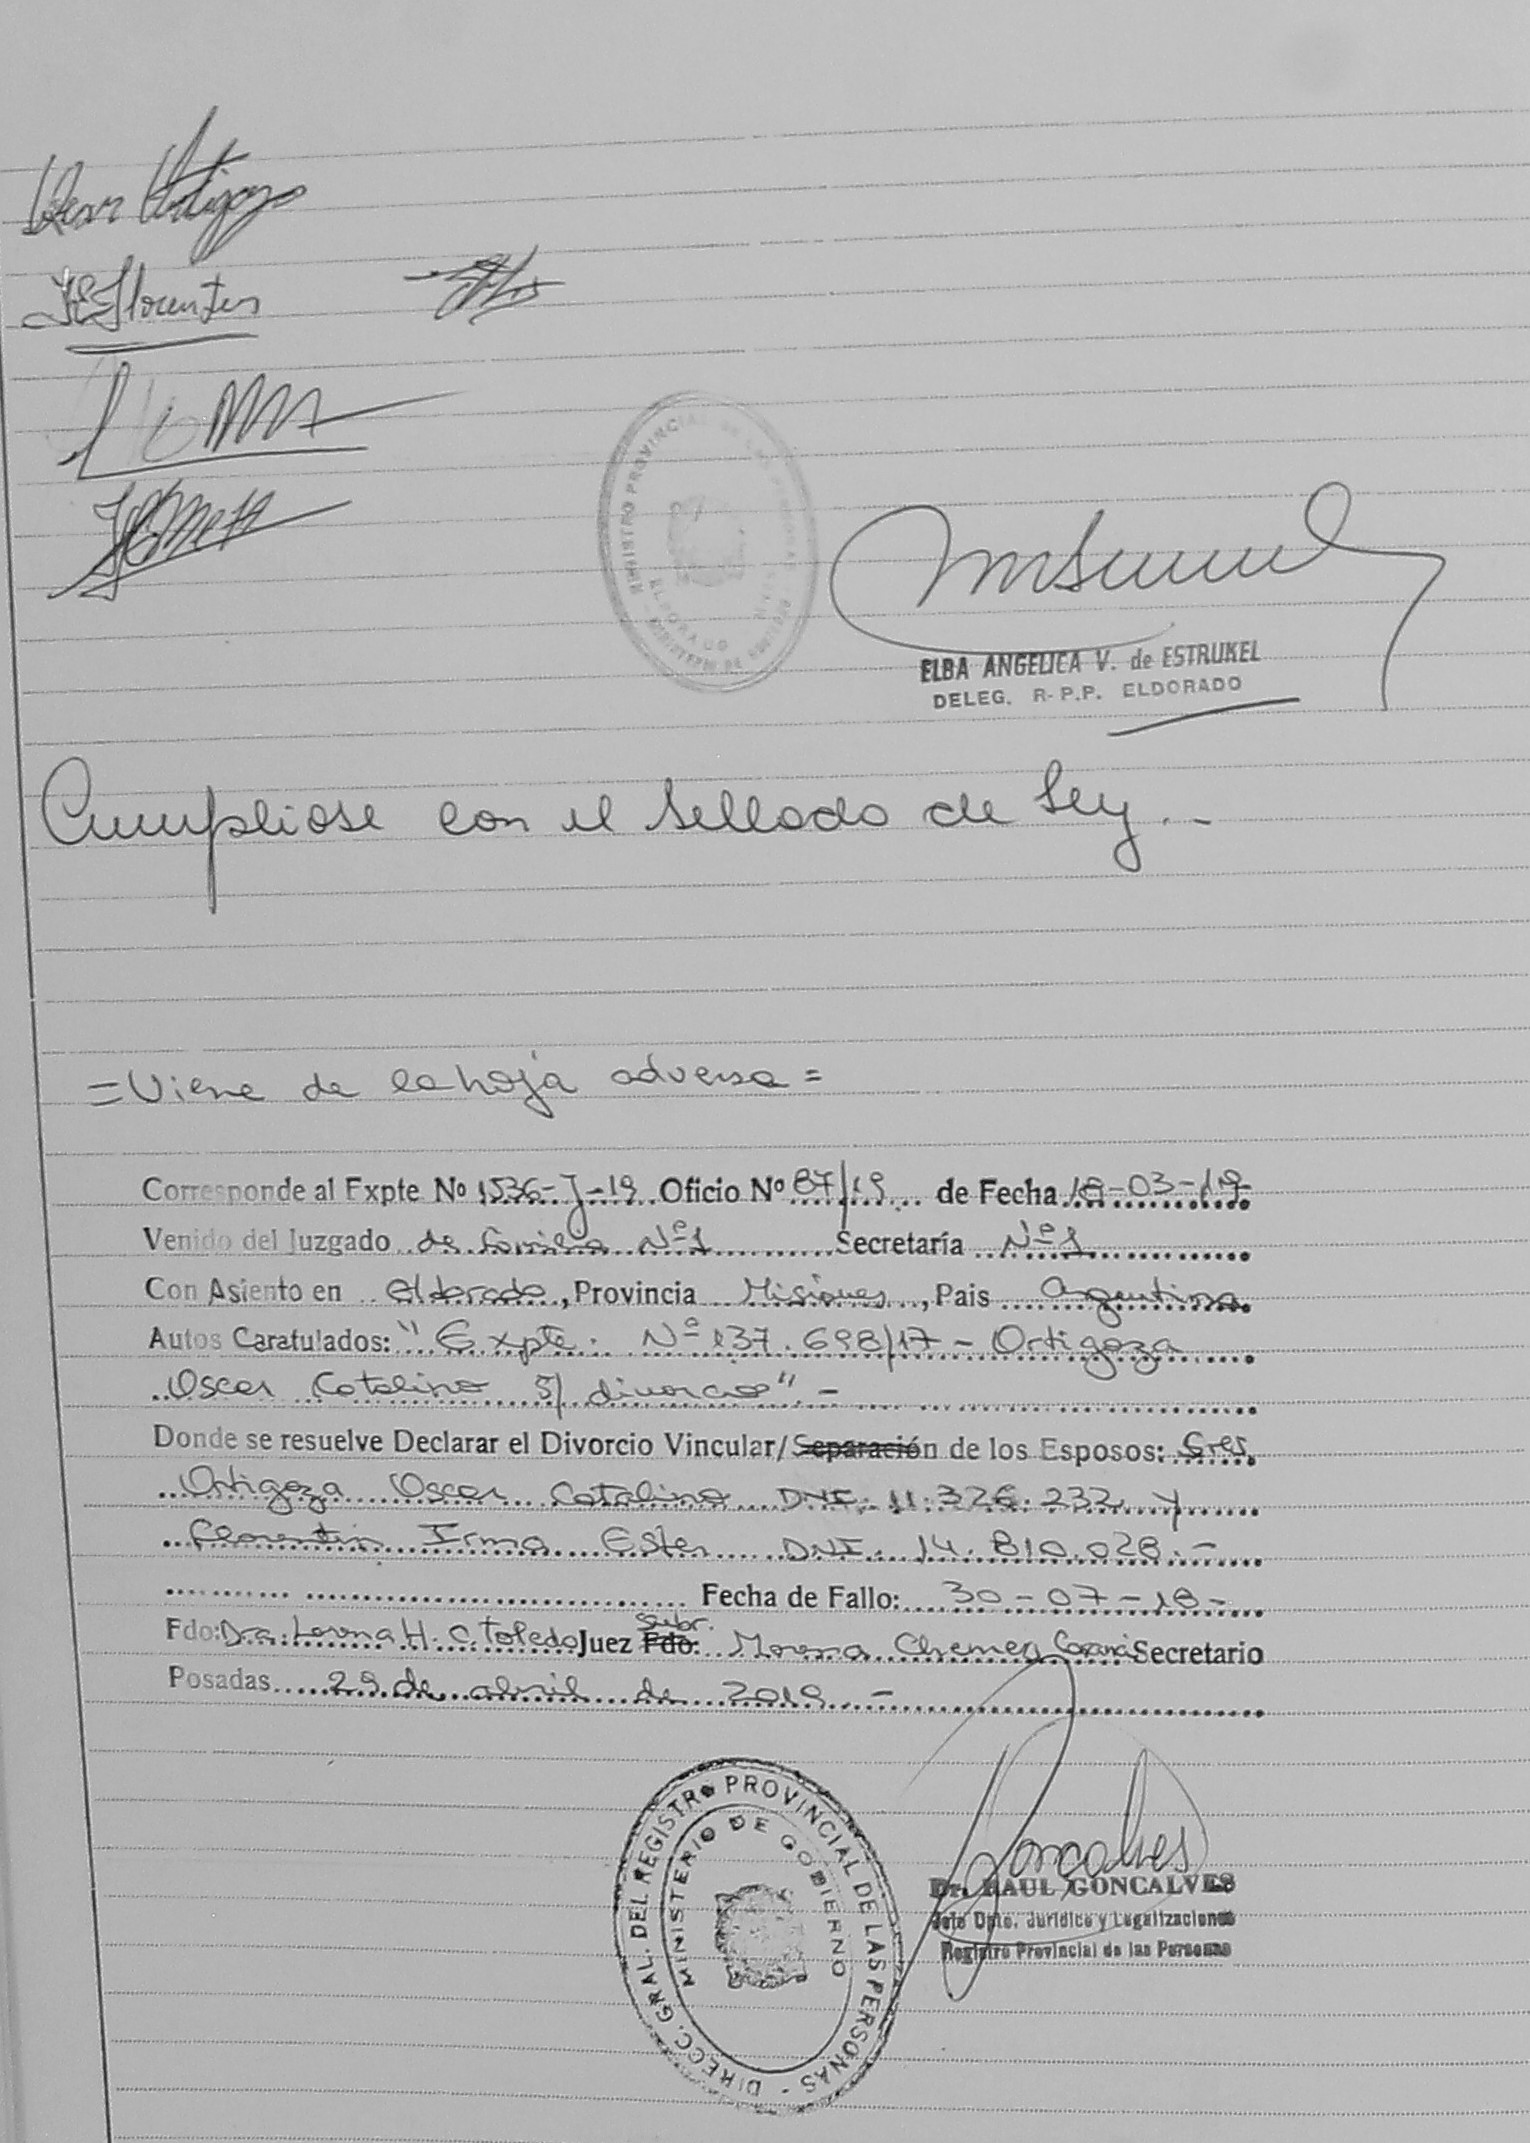 Florentin
REGISTRO PROVINCIAL DE LAS PERSONAS
ELDORADO
MINISTERIO DE GOBIERNO
ELBA ANGELICA V. de ESTRUKEL
DELEG. R-P.P. ELDORADO
Cumpliose con el sellado de ley.-
=Viene de la hoja adversa=
Corresponde al Expte No 1536-J-19 Oficio Nº 87/19 de Fecha 18-03-19
Venido del Juzgado de familia Nº1 Secretaría Nº1
Con Asiento en eldorado, Provincia Misiones, Pais Argentina
Autos Caratulados: "Expte. Nº 137.698/17 - Ortigoza
Oscar Catalino S/ divorcio" -
Donde se resuelve Declarar el Divorcio Vincular/Separación de los Esposos: Sres.
Ortigoza Oscar Catalino DNI. 11.326.232 y
Florentin Irma Ester DNI. 14.810.028.-
Fecha de Fallo: 30-07-18-
Subr.
Fdo: Dra. Lorena H. C. Toledo Juez Fdo: Morena Secretario
Posadas 29 de abril de 2019.-
DIRECC. GRAL. DEL REGISTRO PROVINCIAL DE LAS PERSONAS -
MINISTERIO DE GOBIERNO
Goncalves
Dr. RAUL GONCALVES
Jefe Dpto. Jurídico y Legalizaciones
Registro Provincial de las Personas